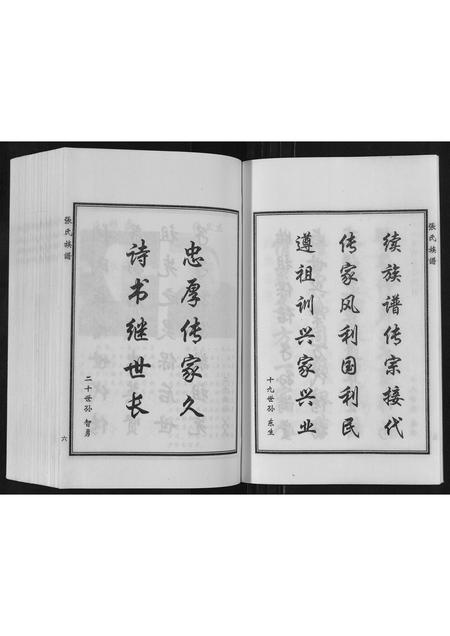 張氏族譜
续族谱传宗接代
传家风利国利民
遵祖训兴家兴业
十九世孙 东生
忠厚传家久
诗书继世长
二十世孙 智勇
張氏族譜
六